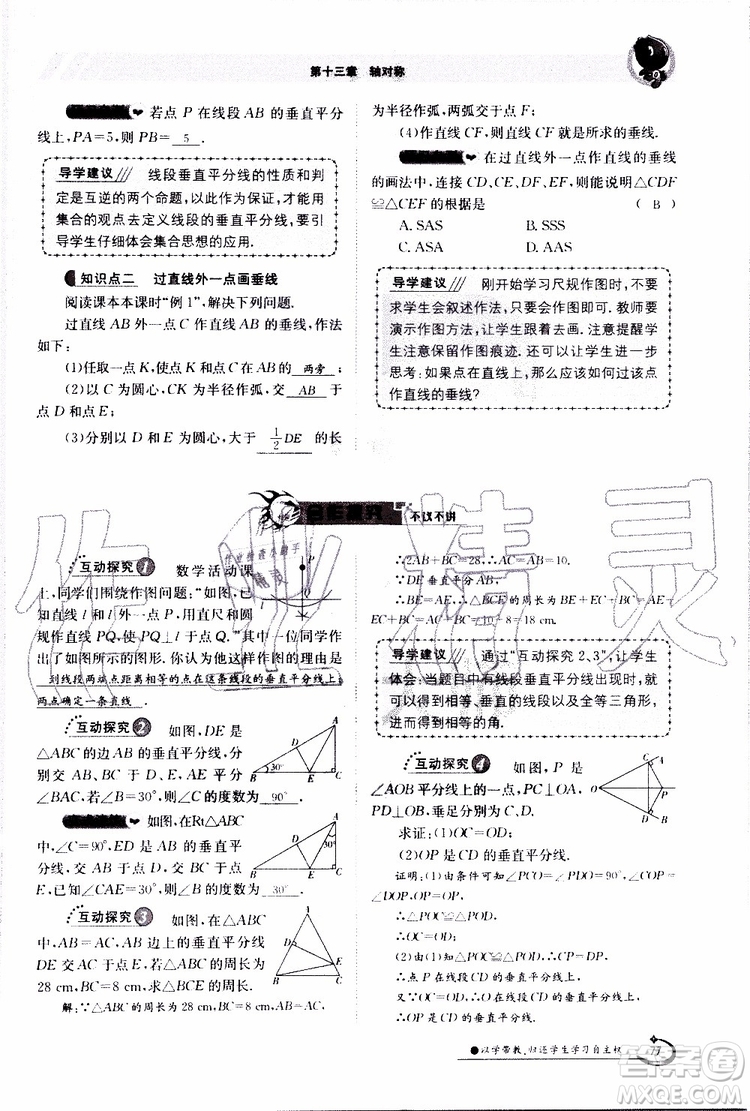 第十三章 轴对称
若点 P 在线段 AB 的垂直平分
线上,PA=5,则 PB= 5 .
导学建议 线段垂直平分线的性质和判
定是互逆的两个命题,以此作为保证,才能用
集合的观点去定义线段的垂直平分线,要引
导学生仔细体会集合思想的应用.
知识点二 过直线外一点画垂线
阅读课本本课时“例 1”,解决下列问题.
过直线 AB 外一点 C 作直线 AB 的垂线,作法
如下:
(1)任取一点 K,使点 K 和点 C 在 AB 的 两旁 ;
(2)以 C 为圆心,CK 为半径作弧,交 AB 于
点 D 和点 E;
(3)分别以 D 和 E 为圆心,大于 1/2 DE 的长
为半径作弧,两弧交于点 F;
(4)作直线 CF,直线 CF 就是所求的垂线.
在过直线外一点作直线的垂线
的画法中,连接 CD、CE、DF、EF,则能说明△CDF
≌△CEF 的根据是 ( B )
A. SAS B. SSS
C. ASA D. AAS
导学建议 刚开始学习尺规作图时,不要
求学生会叙述作法,只要会作图即可. 教师要
演示作图方法,让学生跟着去画. 注意提醒学
生注意保留作图痕迹. 还可以让学生进一步
思考:如果点在直线上,那么应该如何过该点
作直线的垂线?
合作探究 不议不讲
互动探究 1 数学活动课
上,同学们围绕作图问题:“如图,已
知直线 l 和 l 外一点 P,用直尺和圆
规作直线 PQ,使 PQ⊥l 于点 Q.”其中一位同学作
出了如图所示的图形. 你认为他这样作图的理由是
到线段两端点距离相等的点在这条线段的垂直平分线上,
两点确定一条直线 .
互动探究 2 如图,DE 是
△ABC 的垂直平分线,分
别交 AB、BC 于 D、E,AE 平分
∠BAC,若∠B=30°,则∠C 的度数为 90° .
如图,在Rt△ABC
中,∠C=90°,ED 是 AB 的垂直平
分线,交 AB 于点 D,交 BC 于点
E,已知∠CAE=30°,则∠B 的度数为 30° .
互动探究 3 如图,在△ABC
中,AB=AC,AB 的垂直平分线
DE 交 AC 于点 E,△ABC 的周长为
28 cm,BC=8 cm,求△BCE 的周长.
解:∵△ABC 的周长为 28 cm,BC=8 cm,AB=AC,
∴2AB+BC=28,∴AB=AC=10.
∵DE 垂直平分AB,
∴BE=AE,∴△BCE 的周长为 BE+EC+BC=AE+
EC+BC=AC+BC=10+8=18 cm.
导学建议 通过“互动探究 2、3”,让学生
体会:当题目中有线段垂直平分线出现时,就
可以得到相等的线段以及全等三角形,
进而得到相等的角.
互动探究 4 如图,P 是
∠AOB 平分线上的一点,PC⊥OA,
PD⊥OB,垂足分别为 C、D.
求证:(1)OC=OD;
(2)OP 是 CD 的垂直平分线.
证明:(1)由条件可知∠PCO=∠PDO=90°,∠COP=
∠DOP,OP=OP,
∴△POC≌△POD,
∴OC=OD.
(2)由(1)知△POC≌△POD,∴CP=DP,
∴点 P 在线段 CD 的垂直平分线上,
又∵OC=OD,∴点 O 在线段 CD 的垂直平分线上,
∴OP 是 CD 的垂直平分线.
以学带教,归还学生学习自主权
77
作业精灵
答案圈
MXQE.COM